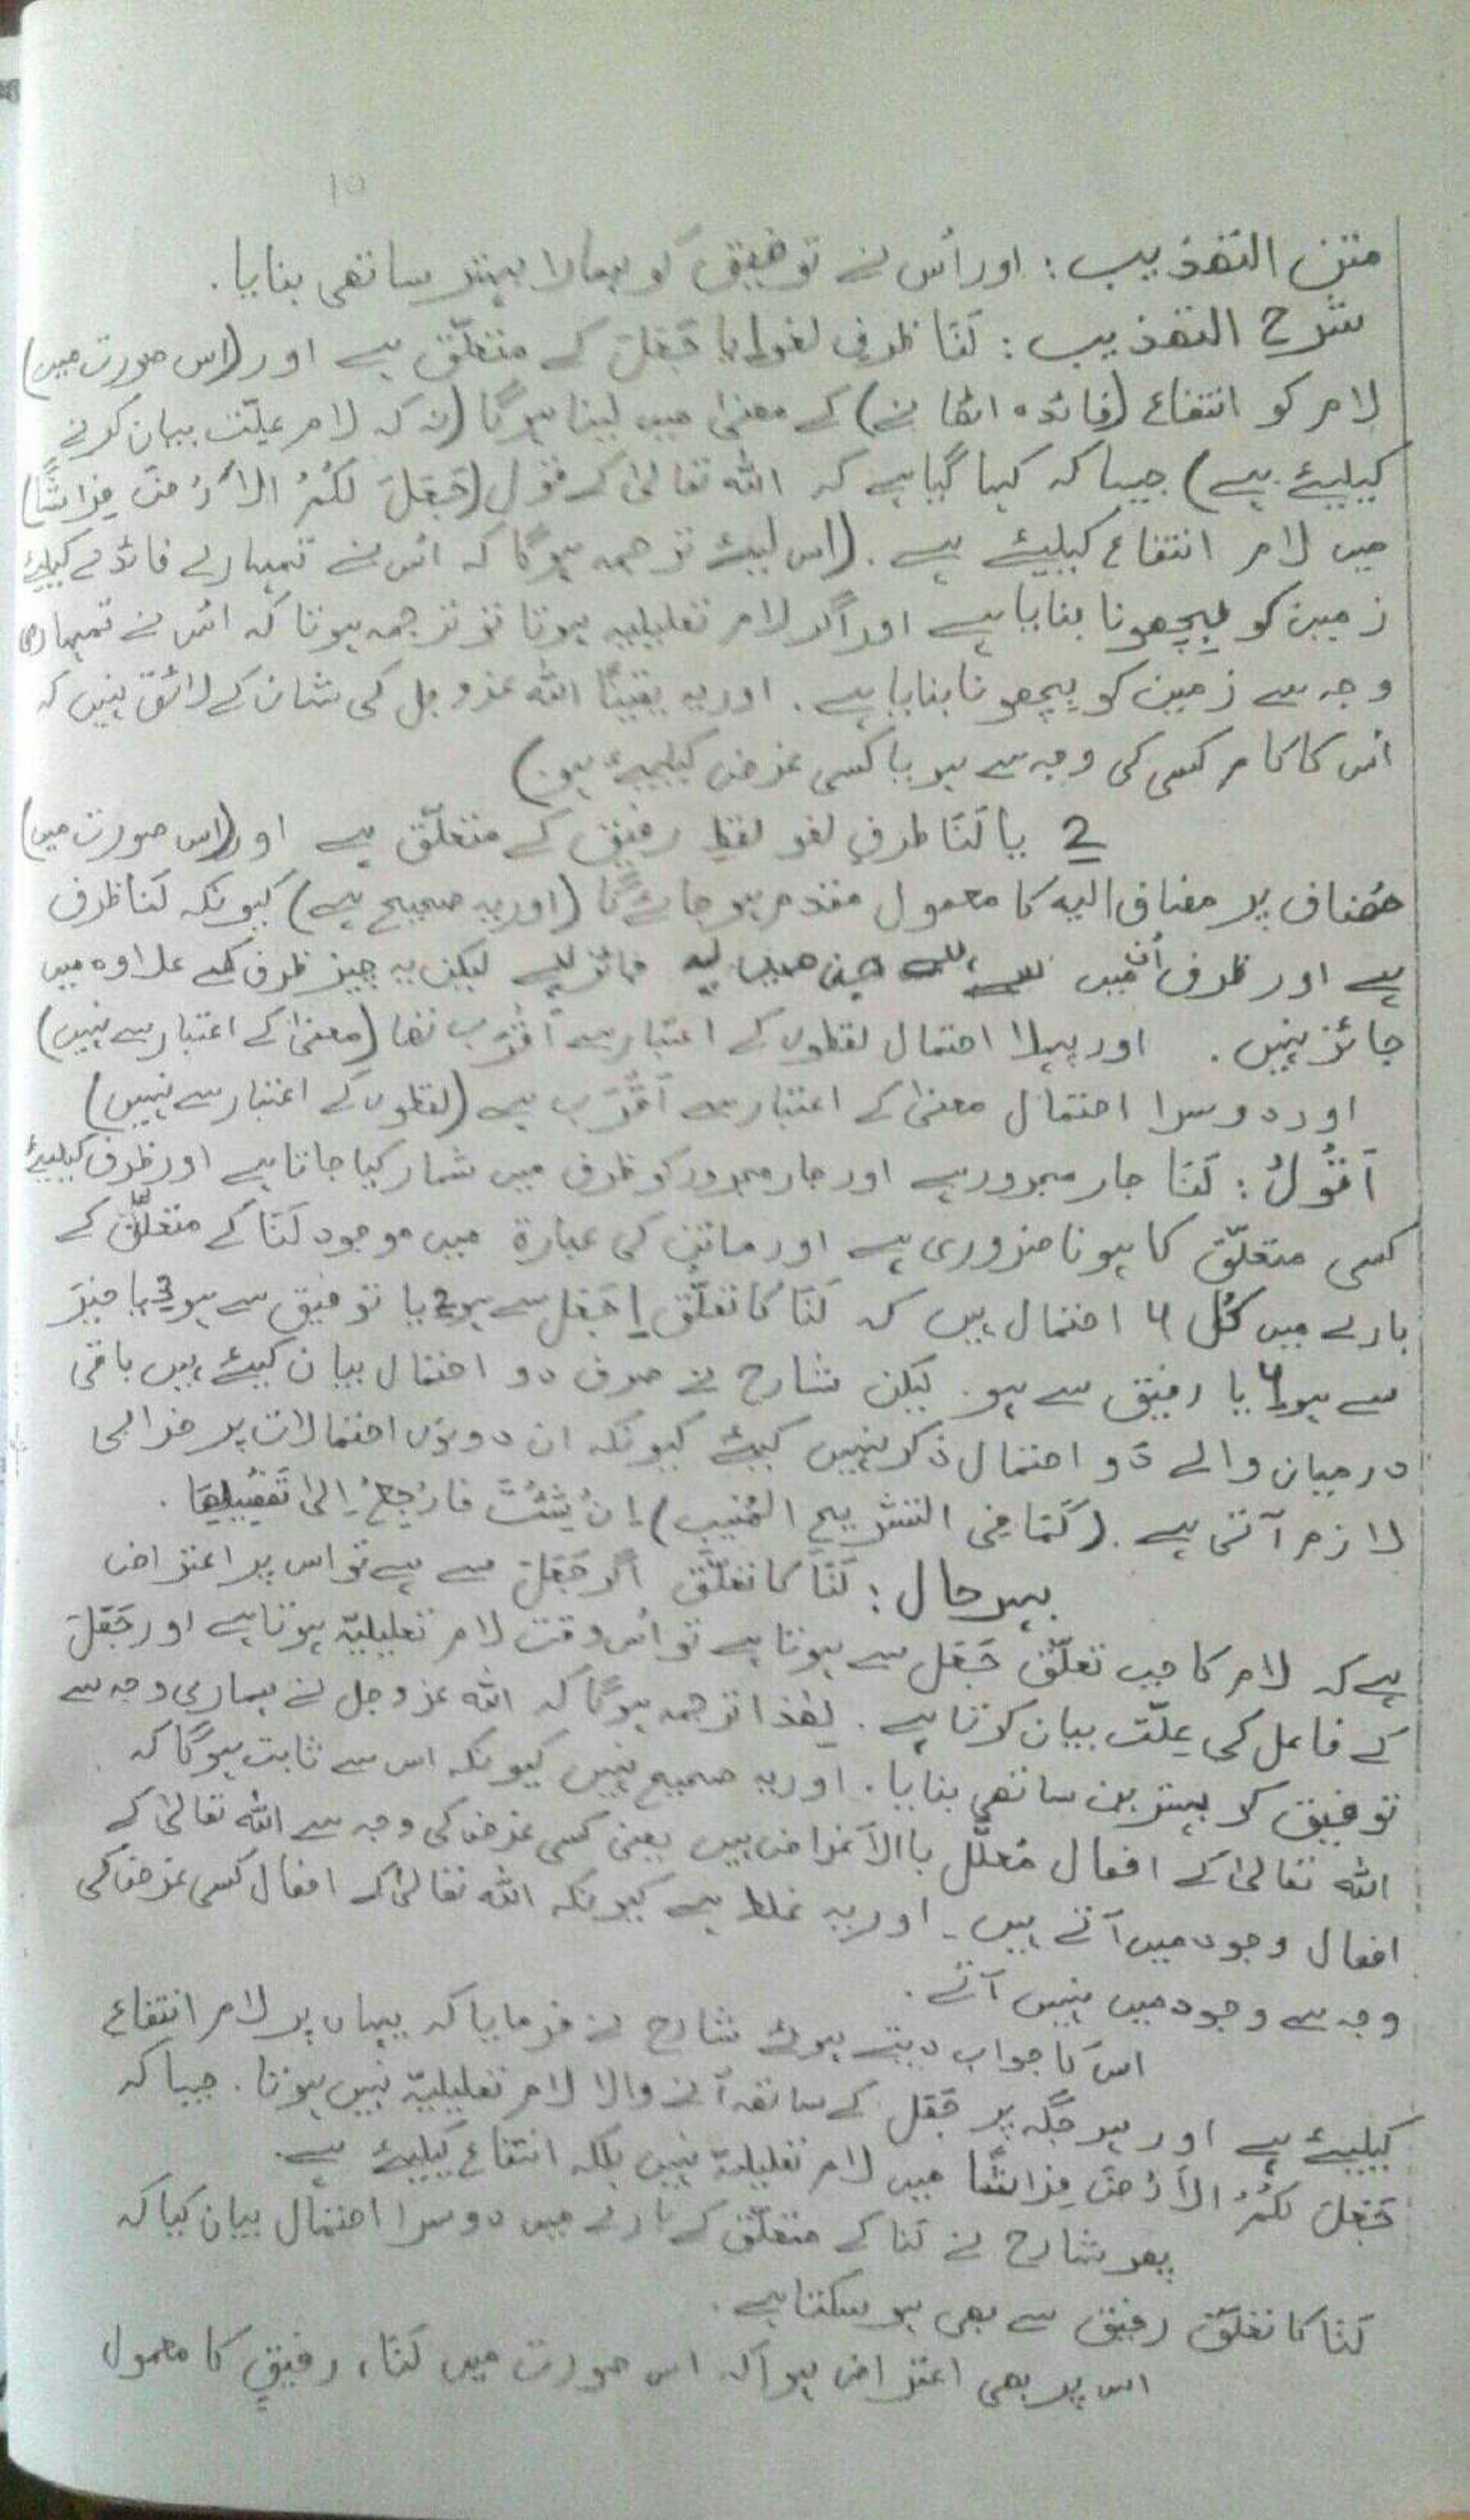 10
متن التھذیب : اور اُس نے توفیق کو ہمارا بہتر ساتھی بنایا .
شرح التھذیب : لَنَا ظرفِ لغو یا جَعَلَ کے متعلّق ہے اور (اس صورت میں)
لام کو انتفاع (فائدہ اٹھانے) کے معنیٰ میں لینا ہوگا (نہ کہ لام علّت بیان کرنے
کیلیئے ہے) جیسا کہ کہا گیا ہے کہ اللہ تعالیٰ کے قول (جَعَلَ لَکُمُ الاَرْضَ فِرَاشًا)
میں لام انتفاع کیلیئے ہے . (اس لیئے ترجمہ ہوگا کہ اُس نے تمہارے فائدے کیلیئے
زمین کو بچھونا بنایا ہے اور اگر لام تعلیلیہ ہوتا تو ترجمہ ہوتا کہ اُس نے تمہاری
وجہ سے زمین کو بچھونا بنایا ہے . اور یہ یقینًا اللہ عزوجل کی شان کے لائق نہیں کہ
اُس کا کام کسی کی وجہ سے ہو یا کسی غرض کیلیئے ہو .)
2 یا لَنَا ظرفِ لغو لفظِ رفیق کے متعلّق ہے اور (اس صورت میں)
مُضاف پر مضاف الیہ کا معمول مقدم ہو جائے گا (اور یہ صحیح ہے) کیونکہ لَنَا ظرف
ہے اور ظرف میں جائز ہے لیکن یہ چیز ظرف کے علاوہ میں
جائز نہیں . اور پہلا احتمال لفظوں کے اعتبار سے اَقْرَب تھا (معنیٰ کے اعتبار سے نہیں)
اور دوسرا احتمال معنیٰ کے اعتبار سے اَقْرَب ہے (لفظوں کے اعتبار سے نہیں)
اَقُوْلُ : لَنَا جار مجرور ہے اور جار مجرور کو ظرف میں شمار کیا جاتا ہے اور ظرف کیلیئے
کسی متعلّق کا ہونا ضروری ہے اور ماتن کی عبارۃ میں موجود لَنَا کے متعلّق کے
بارے میں کُل 4 احتمال ہیں کہ لَنَا کا تعلّق 1 جَعَلَ سے ہو 2 یا توفیق سے ہو 3 یا خیرَ
سے ہو 4 یا رفیق سے ہو . لیکن شارح نے صرف دو احتمال بیان کیئے ہیں باقی
درمیان والے دو احتمال ذکر نہیں کیئے کیونکہ ان دونوں احتمالات پر خرابی
لازم آتی ہے . (کَمَا فِی التشریح المُنیب) اِنْ شِئْتَ فَارْجِعْ اِلیٰ تَفْصِیْلِھَا .
بہر حال : لَنَا کا تعلّق اگر جَعَلَ سے ہے تو اس پر اعتراض
ہے کہ لام کا جب تعلّق جَعَلَ سے ہوتا ہے تو اُس وقت لام تعلیلیّہ ہوتا ہے اور جَعَلَ
کے فاعل کی علّت بیان کرتا ہے . لھذا ترجمہ ہوگا کہ اللہ عزوجل نے ہماری وجہ سے
توفیق کو بہترین ساتھی بنایا . اور یہ صحیح نہیں کیونکہ اس سے ثابت ہوگا کہ
اللہ تعالیٰ کے افعال مُعلَّل باالاَغراض ہیں یعنی کسی غرض کی وجہ سے اللہ تعالیٰ کے
افعال وجود میں آتے ہیں ۔ اور یہ غلط ہے کیونکہ اللہ تعالیٰ کے افعال کسی غرض کی
وجہ سے وجود میں نہیں آتے .
اس کا جواب دیتے ہوئے شارح نے فرمایا کہ یہاں پر لام انتفاع
کیلیئے ہے اور ہر جگہ پر جَعَلَ کے ساتھ آنے والا لام تعلیلیّہ نہیں ہوتا . جیسا کہ
جَعَلَ لَکُمُ الاَرْضَ فِرَاشًا میں لام تعلیلیّہ نہیں بلکہ انتفاع کیلیئے ہے .
پھر شارح نے لَنَا کے متعلّق کے بارے میں دوسرا احتمال بیان کیا کہ
لَنَا کا تعلّق رفیق سے بھی ہو سکتا ہے .
اس پر بھی اعتراض ہوا کہ اس صورت میں لَنَا ، رفیقٍ کا معمول